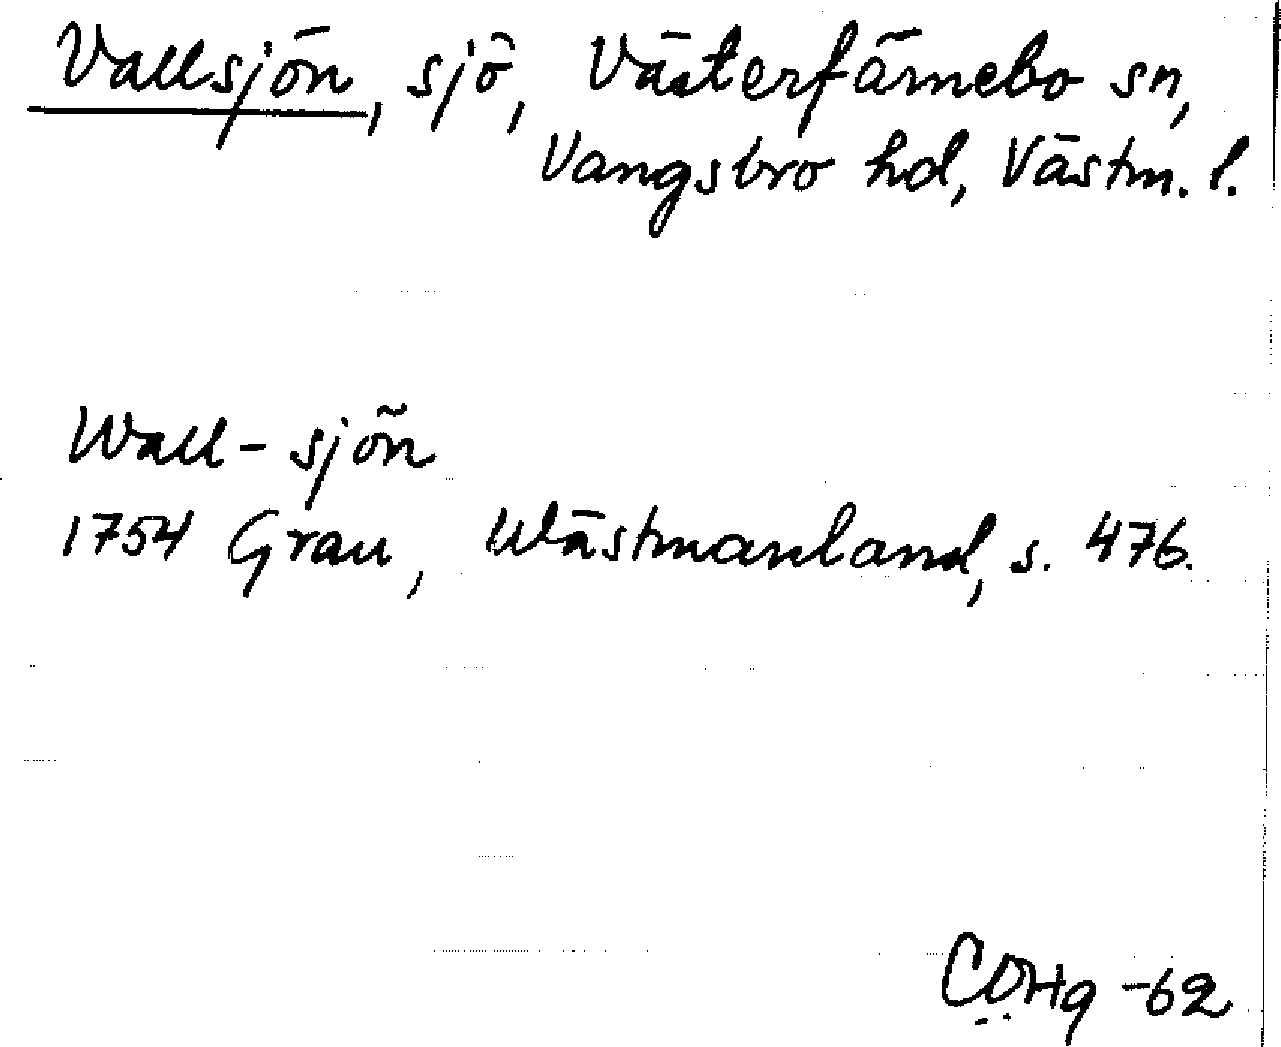 Vallsjön, sjö, Västerfärnebo sn,
Vangsbro hd, Västm. l.
Wall-sjön
1754 Grau, Wästmanland, s. 476.
CÖHg -62